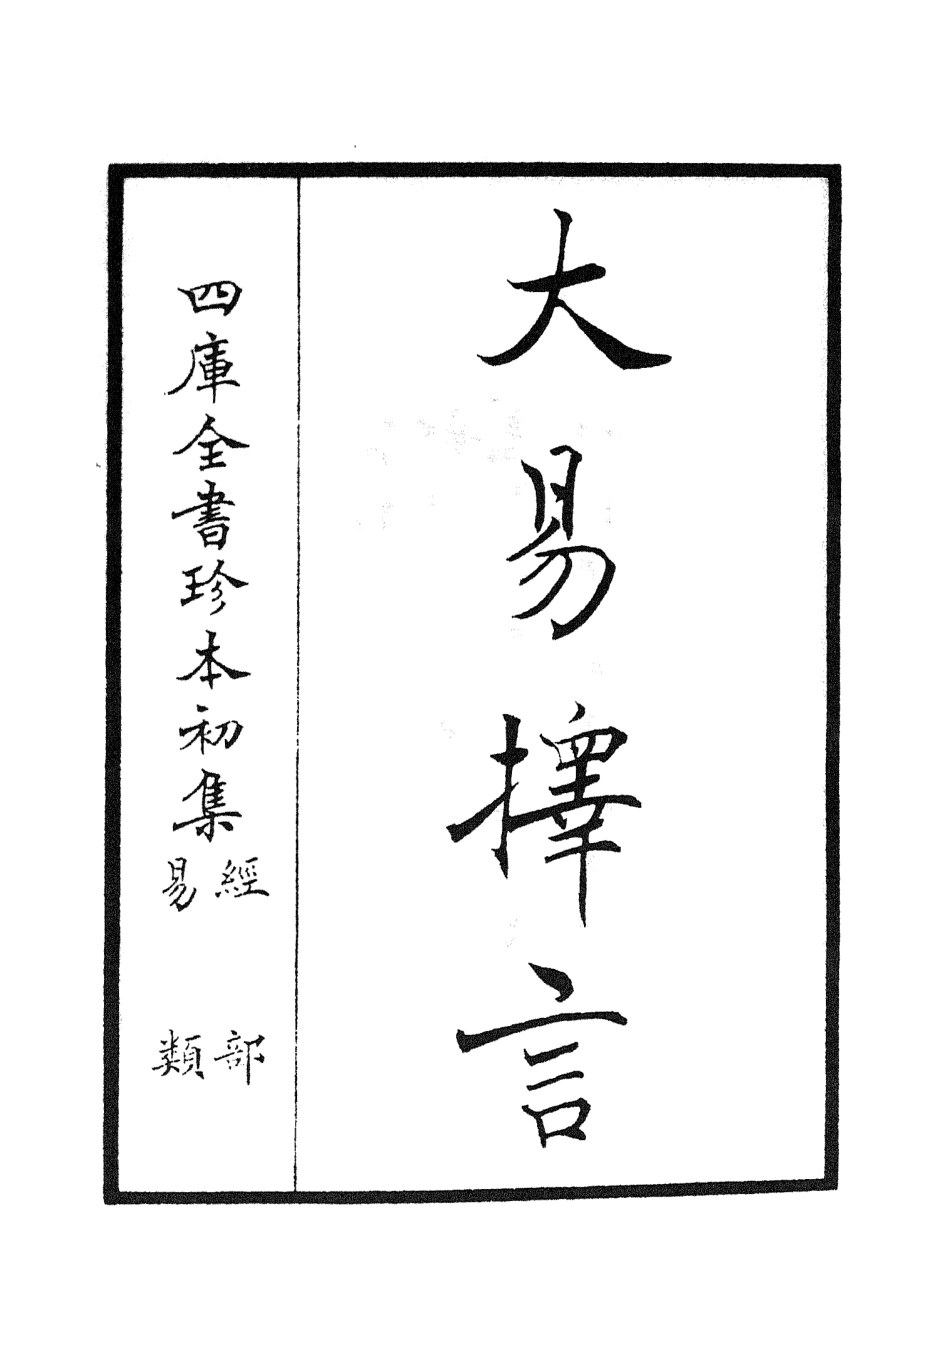 大易擇言
四庫全書珍本初集
經部
易類